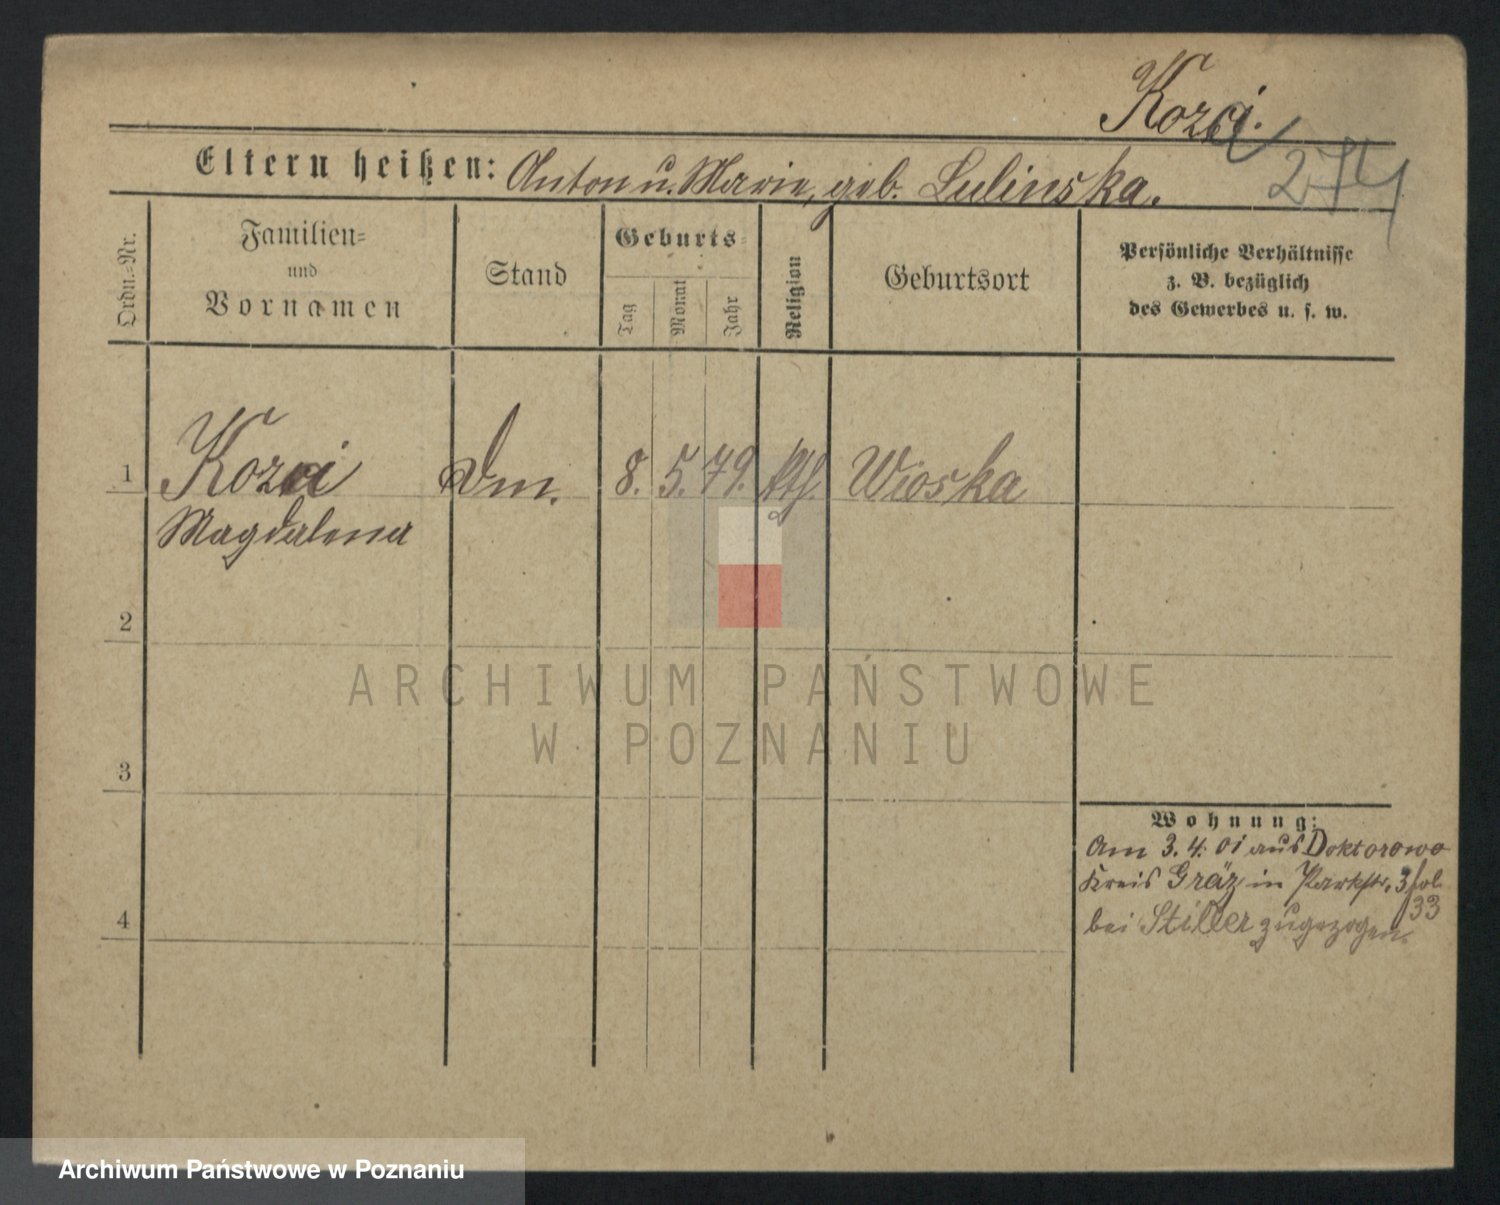 Kozai.
274
Eltern heißen: Anton u. Marie, geb. Lulinska.
Ordn.-Nr.
Familien-
und
Vornamen
Stand
Geburts-
Tag
Monat
Jahr
Religion
Geburtsort
Persönliche Verhältnisse
z. B. bezüglich
des Gewerbes u. s. w.
1 Kozai Dm. 8. 5. 79. kth. Wioska
Magdalena
2
3
4
Wohnung:
Am 3. 4. 01 aus Doktorowo
Kreis Grätz in Parkstr. 3
bei Stiller zugezogen.
33
ARCHIWUM PAŃSTWOWE
W POZNANIU
Archiwum Państwowe w Poznaniu